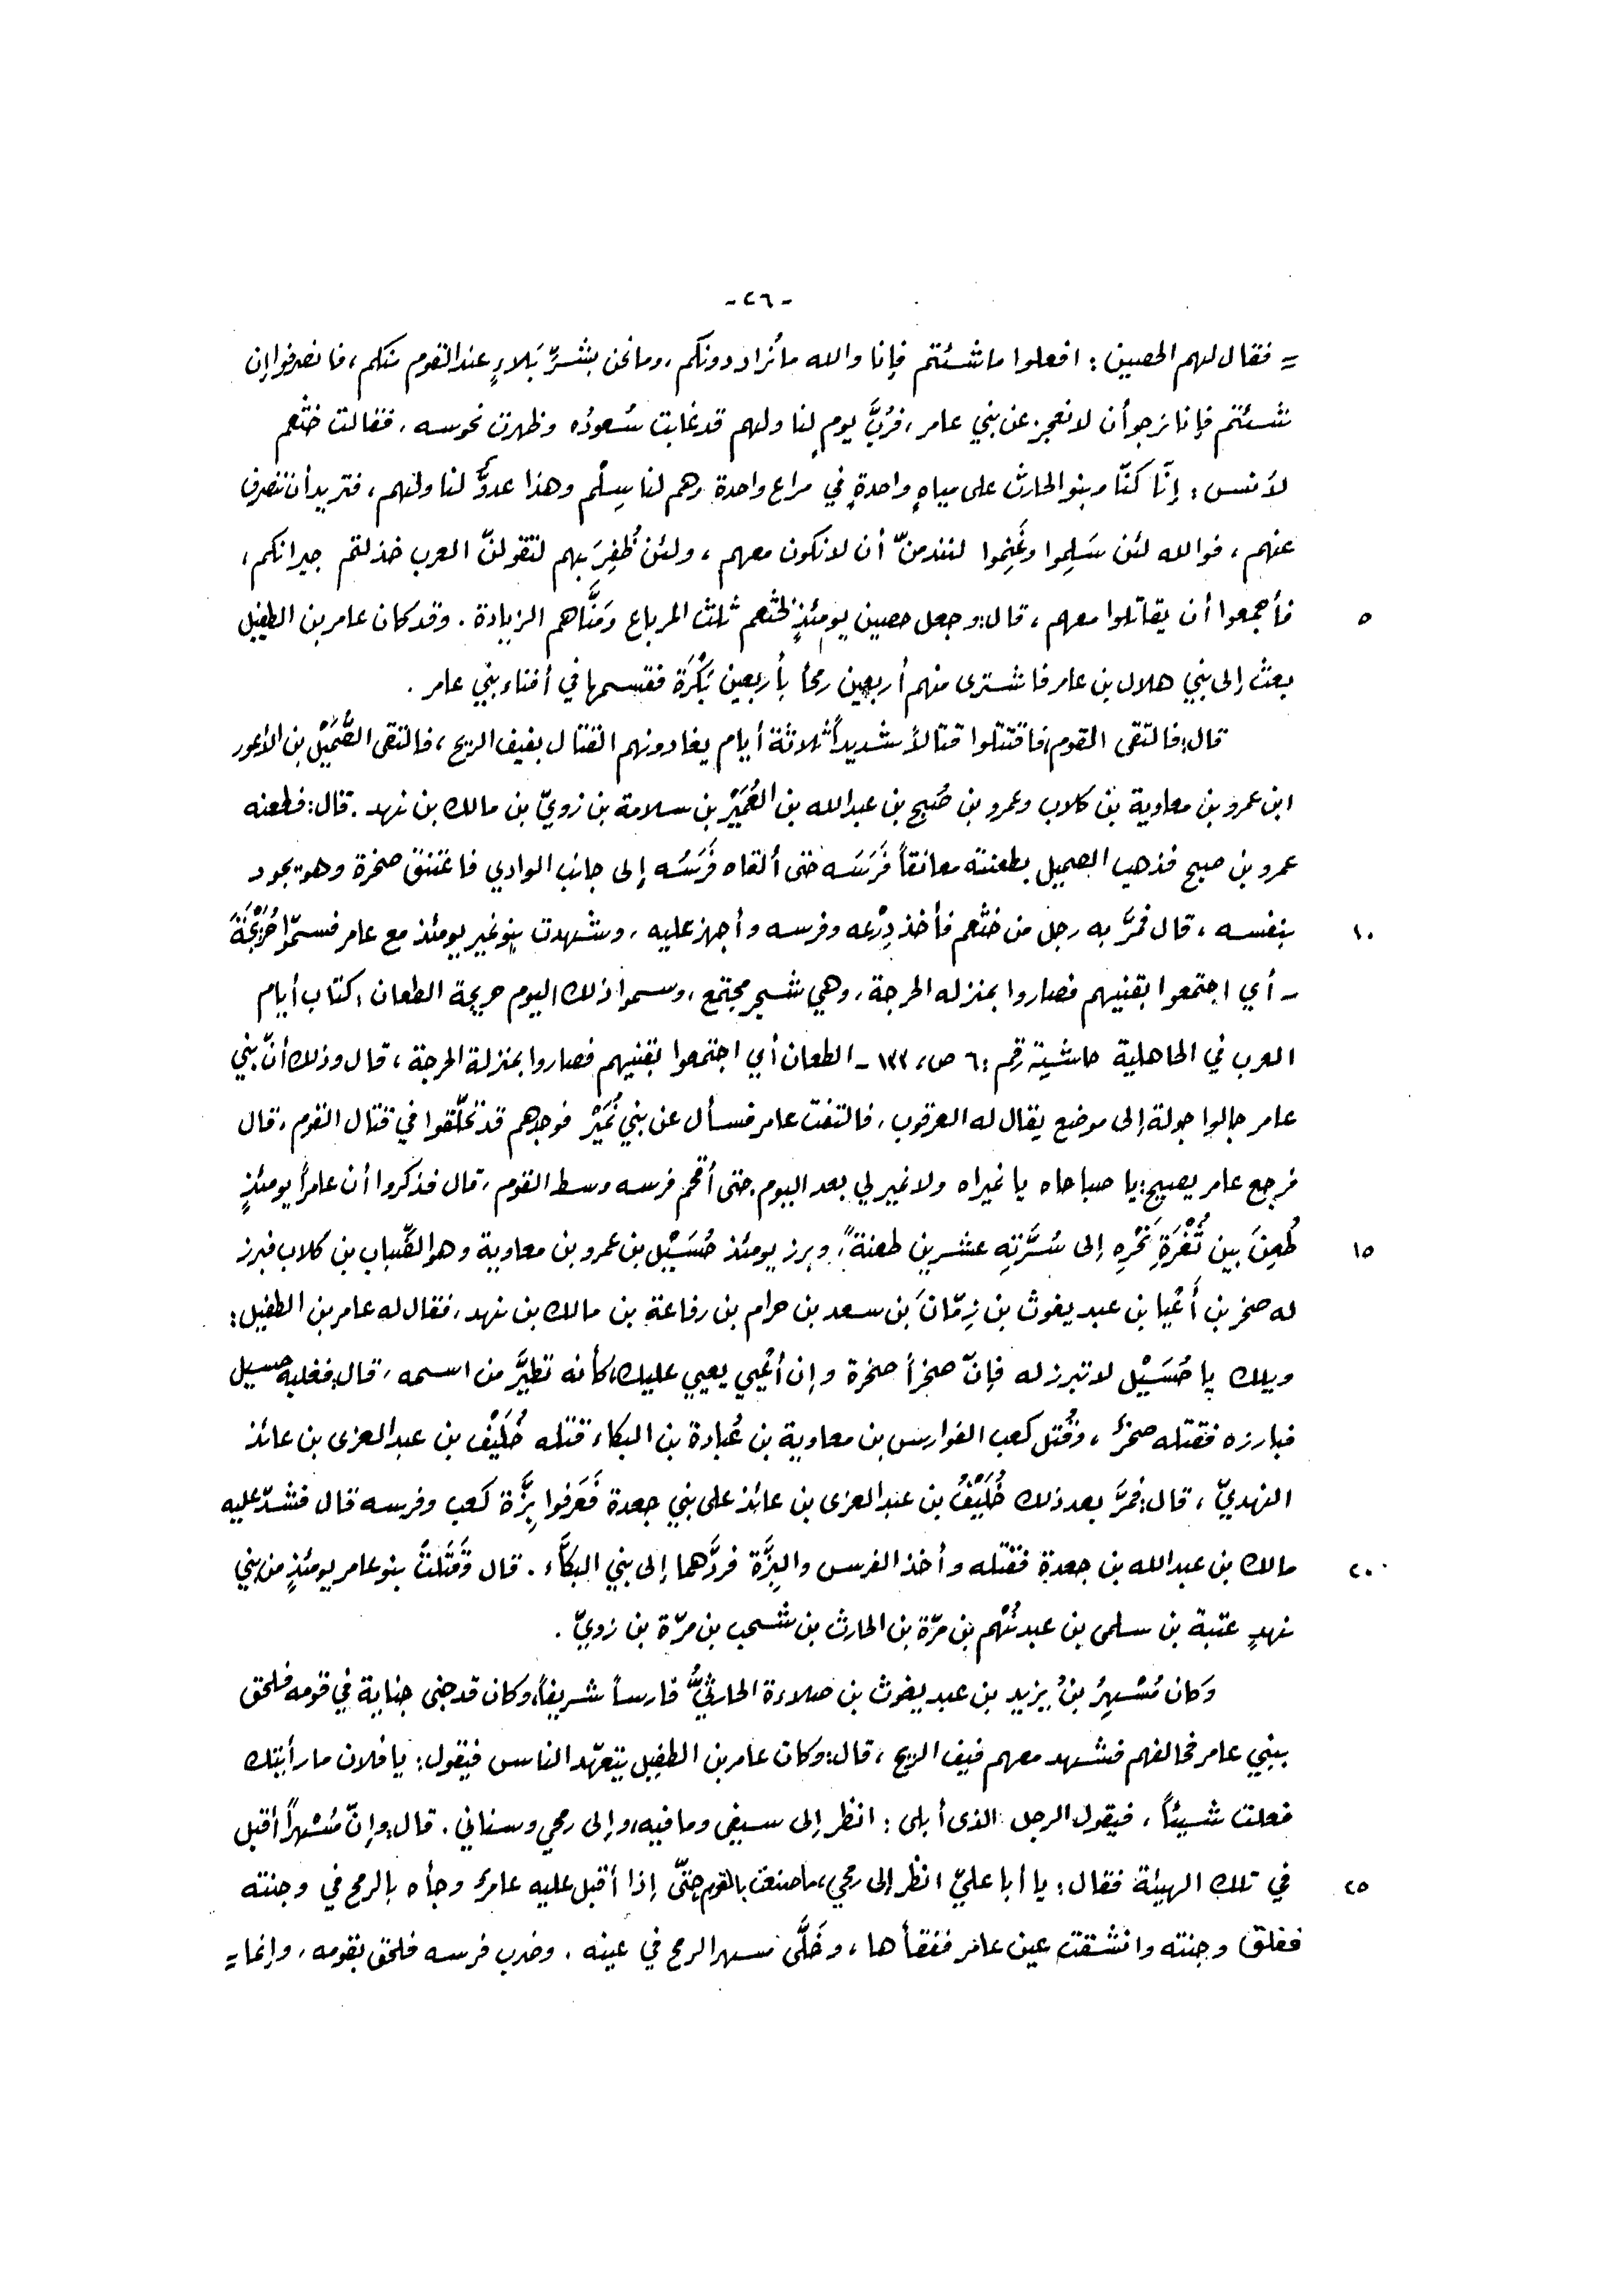 -٢٦-
= فقال لهم الحصين: افعلوا ما شئتم فإنا والله ما نُراد دونكم، وما نحن بشَرِّ بَلاءٍ عند القوم منكم، فانصرفوا إن
شئتم فإنا نرجو أن لا نعجز عن بني عامر، فرُبَّ يومٍ لنا ولهم قد غابت سُعودُه وظهرت نحوسه، فقالت خثعم
لأنس: إنّا كنّا وبنو الحارث على مياهٍ واحدةٍ في مراع واحدة وهم لنا سِلْم وهذا عدوٌّ لنا ولهم، فتريد أن ننصرف
عنهم، فوالله لئن سَلِموا وغَنِموا لنندمنّ أن لا نكون معهم، ولئن ظُفِرَ بهم لتقولنّ العرب خذلتم جيرانكم،
فأجمعوا أن يقاتلوا معهم، قال: وجعل حصين يومئذٍ لخثعم ثلث المرباع ومَنَّاهم الزيادة. وقد كان عامر بن الطفيل
٥
بعث إلى بني هلال بن عامر فاشترى منهم أربعين رمحاً بأربعين بَكْرَة فقسمها في أفناء بني عامر.
قال: فالتقى القوم، فاقتتلوا قتالاً شديداً ثلاثة أيام يغادونهم القتال بفيف الريح، فالتقى الصُّمَيْل بن الأعور
ابن عمرو بن معاوية بن كلاب وعمرو بن صُبيح بن عبدالله بن العُمَيْر بن سلامة بن زويّ بن مالك بن نهد. قال: فطعنه
عمرو بن صبيح فذهب الصميل بطعنته معانقاً فَرَسَه حتى ألقاه فَرَسُه إلى جانب الوادي فاعتنق صخرة وهو يجود
بنفسه، قال فمرَّ به رجل من خثعم فأخذ دِرْعه وفرسه وأجهز عليه، وشهدت بنو نمير يومئذ مع عامر فسمّوا حُرَيْجَةَ
١٠
- أي اجتمعوا بقنيهم فصاروا بمنزلة الحرجة، وهي شجر مجتمع، وسموا ذلك اليوم حريجة الطعان، كتاب أيام
العرب في الجاهلية حاشية رقم: ٦ ص، ١٣٣ - الطعان أي اجتمعوا بقنيهم فصاروا بمنزلة الحرجة، قال وذلك أنّ بني
عامر جالوا جولة إلى موضع يقال له العرقوب، فالتفت عامر فسأل عن بني نُمَيْر فوجدهم قد تخلّفوا في قتال القوم، قال
فرجع عامر يصيح: يا صباحاه يا نميراه ولا نمير لي بعد اليوم، حتى أقحم فرسه وسط القوم، قال فذكروا أن عامراً يومئذٍ
طُعِنَ بين ثُغْرَةِ نَحْرِهِ إلى سُرَّتِهِ عشرين طعنةً، وبرز يومئذ حُسَيْل بن عمرو بن معاوية وهو الضِّباب بن كلاب فبرز
١٥
له صخر بن أَعْيا بن عبد يغوث بن زِمّانَ بن سعد بن حرام بن رفاعة بن مالك بن نهد، فقال له عامر بن الطفيل:
ويلك يا حُسَيْل لا تبرز له فإنّ صخراً صخرة وإن أعْيي يعيي عليك، كأنه تطيَّر من اسمه، قال: فغلبه حسيل
فبارزه فقتله صخرٌ، وقُتل كعب الفوارس بن معاوية بن عُبادة بن البكاء قتله خُلَيْف بن عبدالعزى بن عائذ
النهديّ، قال: فمرَّ بعد ذلك خُلَيْفُ بن عبدالعزى بن عائذ على بني جعدة فَعَرفوا بِزَّة كعب وفرسه قال فشدّ عليه
مالك بن عبدالله بن جعدة فقتله وأخذ الفرس والبِزَّة فردَّهما إلى بني البكّاء. قال وقَتَلتْ بنو عامر يومئذٍ من بني
٢٠
نهدٍ عتبة بن سلمى بن عبد نُهْم بن مرّة بن الحارث بن شحب بن مرّة بن زويّ.
وكان مُسْهِرُ بنُ يزيد بن عبد يغوث بن صلاءة الحارثيُّ فارساً شريفاً، وكان قد جنى جناية في قومه فلحق
ببني عامر فحالفهم فشهد معهم فيف الريح، قال: وكان عامر بن الطفيل يتعهّد الناس فيقول: يا فلان ما رأيتك
فعلت شيئاً، فيقول الرجل الذى أبلى: انظر إلى سيفي وما فيه، وإلى رمحي وسناني. قال: وإنّ مُسْهراً أقبل
في تلك الهيئة فقال: يا أبا عليّ انظر إلى رمحي، ما صنعت بالقوم حتّى إذا أقبل عليه عامرٌ وجأه بالرمح في وجنته
٢٥
ففلق وجنته وانشقت عين عامر ففقأها، وخَلَّى مسهر الرمح في عينه. وضرب فرسه فلحق بقومه، وإنما =